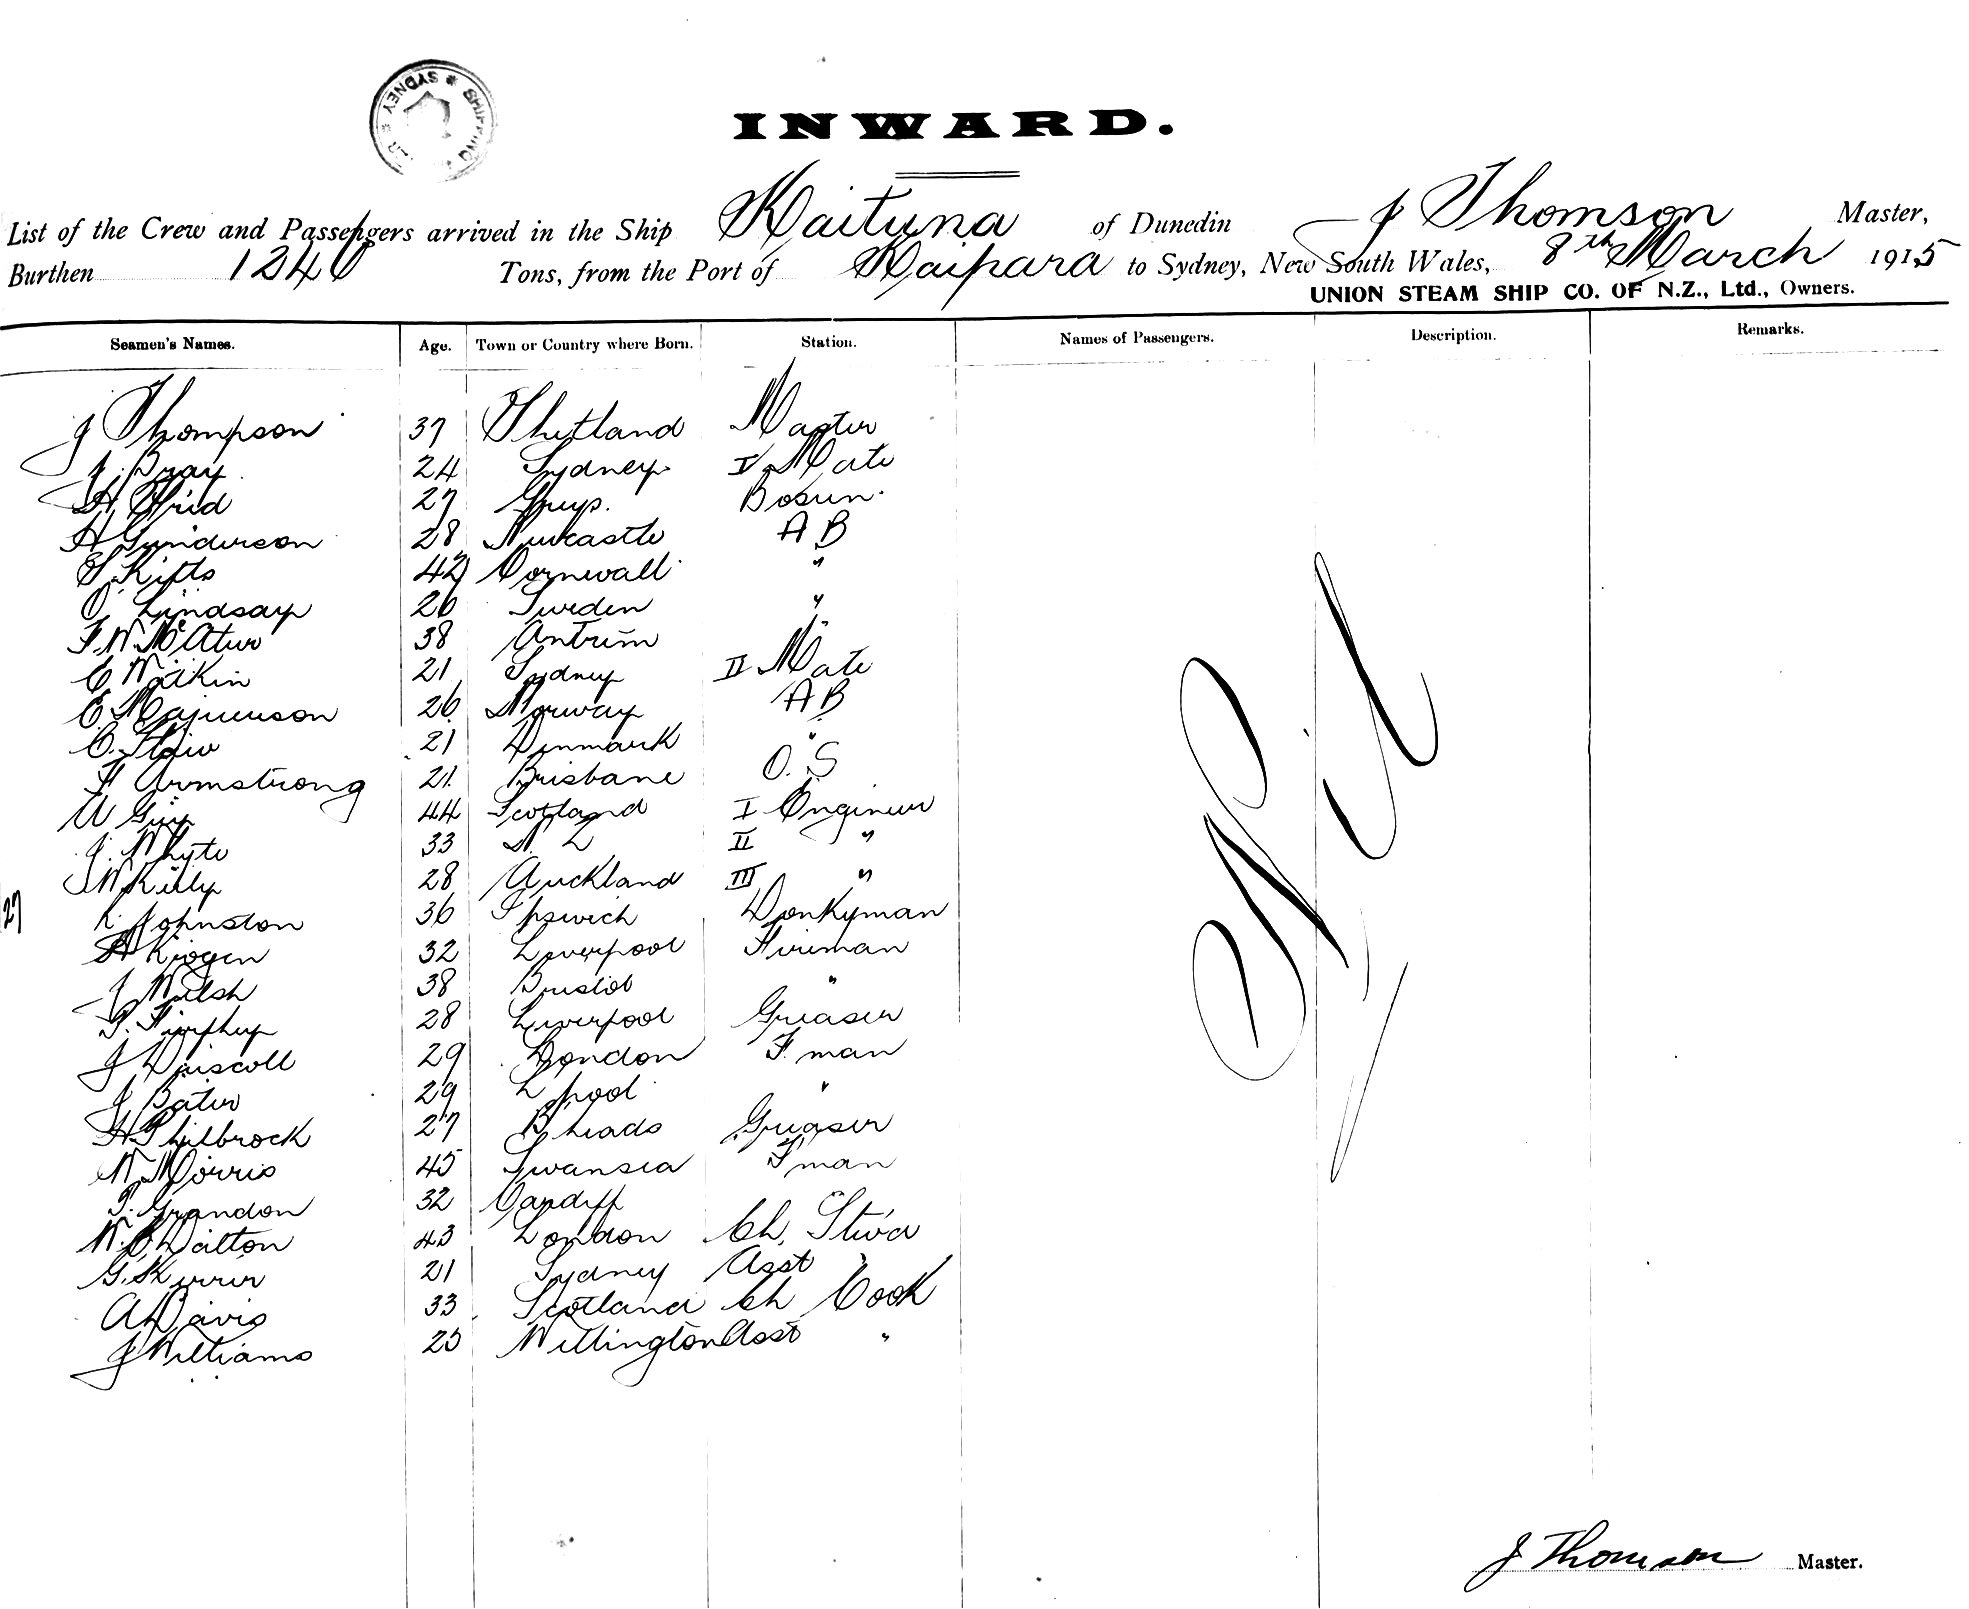 SHIPPING * SYDNEY *
INWARD.
List of the Crew and Passengers arrived in the Ship Kaituna of Dunedin J Thomson Master,
Burthen 1246 Tons, from the Port of Kaipara to Sydney, New South Wales, 8th March 1915
UNION STEAM SHIP CO. OF N.Z., Ltd., Owners.
Seamen's Names. Age. Town or Country where Born. Station. Names of Passengers. Description. Remarks.
J Thompson 37 Shetland Master
J. Bray 24 Sydney I Mate
H 27 Bosun
H Gunderson 28 Newcastle A B
Kifts 42 Cornwall "
O. Lindsay 26 Sweden "
F. W. McAteer 38 Antrim "
E Watkin 21 Sydney II Mate
E. 26 Norway A B
C. 21 Denmark "
F Armstrong 21 Brisbane O. S
A Guy 44 Scotland I Engineer
J. Whyte 33 N. Z II "
J W Kelly 28 Auckland III "
27
Johnston 36 Ipswich Donkyman
H 32 Liverpool Fireman
J Welsh 38 Bristol "
28 Liverpool Greaser
J Driscoll 29 London F. man
J Bater 29 L pool "
H Philbrock 27 B heads Greaser
W Morris 45 Swansea F man
T. Grandon 32 Cardiff
W. C. Dalton 43 London Ch. Stwd
G. 21 Sydney Asst "
A Davis 33 Scotland Ch Cook
J Williams 25 Wellington Asst "
Nil
J Thomson Master.